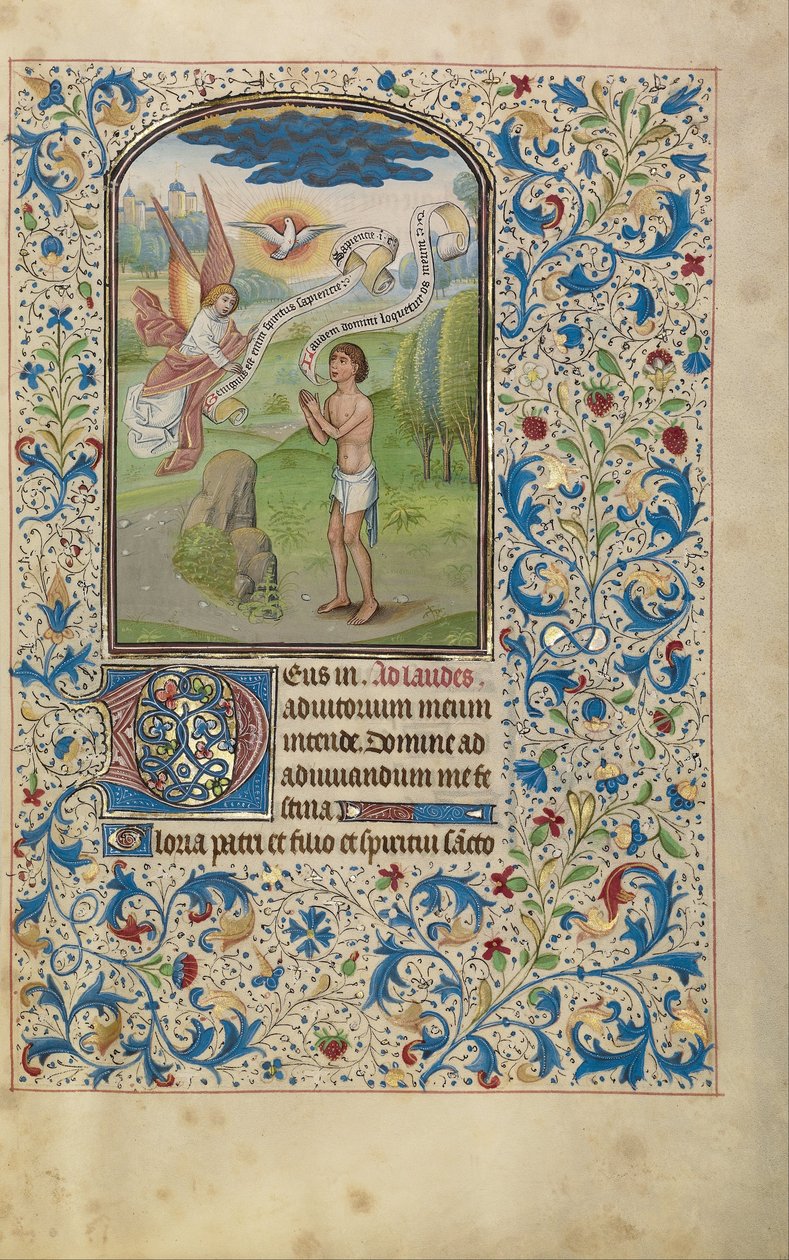 Benignus est enim spiritus sapiencie:
Sapiencie .i. cº
Laudem domini loquetur os meum et c.
DEus in. Ad laudes.
adiutorium meum
intende. Domine ad
adiuuandum me fe
stina
Gloria patri et filio et spiritui sc̄to